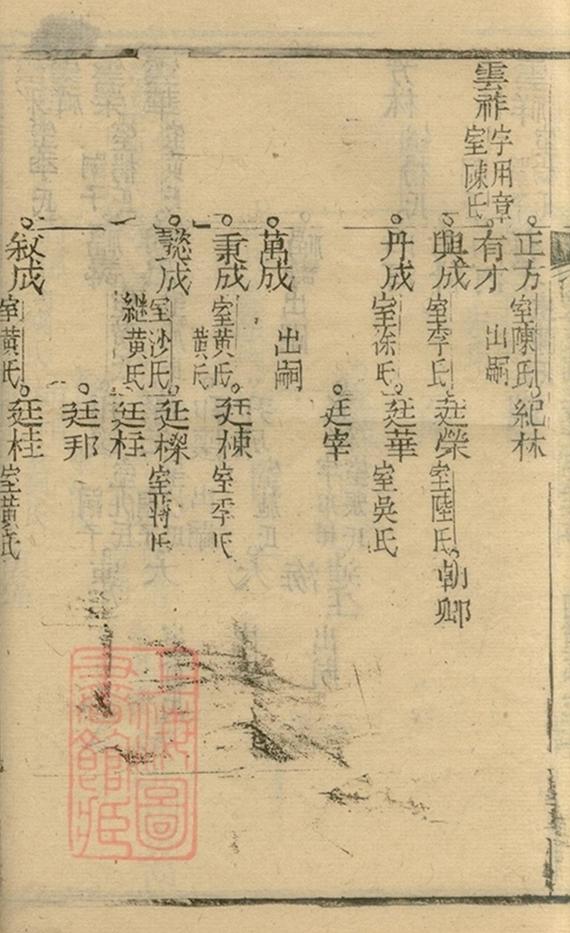 正方 室陳氏 紀林
雲祚 字用章 室陳氏 有才 出嗣
興成 室李氏 廷榮 室陸氏 朝卿
丹成 室徐氏 廷華 室吳氏
廷宰
萬成 出嗣
秉成 室黃氏 黃氏 廷棟 室李氏
懿成 室沙氏 継黃氏 廷樑 室蒋氏
廷枉
廷邦
敘成 室黃氏 廷桂 室黃氏
上海圖書館藏